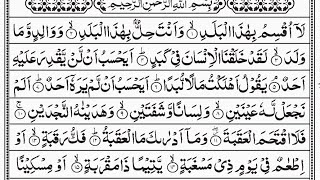 بِسْمِ اللهِ الرَّحْمٰنِ الرَّحِيْمِ
لَاۤ اُقْسِمُ بِهٰذَا الْبَلَدِ ۙ۝۱ وَاَنْتَ حِلٌّۢ بِهٰذَا الْبَلَدِ ۙ۝۲ وَوَالِدٍ وَّمَا
وَلَدَ ۙ۝۳ لَقَدْ خَلَقْنَا الْاِنْسَانَ فِيْ كَبَدٍ ؕ۝۴ اَيَحْسَبُ اَنْ لَّنْ يَّقْدِرَ عَلَيْهِ
اَحَدٌ ۘ۝۵ يَقُوْلُ اَهْلَكْتُ مَالًا لُّبَدًا ؕ۝۶ اَيَحْسَبُ اَنْ لَّمْ يَرَهٗۤ اَحَدٌ ؕ۝۷ اَلَمْ
نَجْعَلْ لَّهٗ عَيْنَيْنِ ۙ۝۸ وَلِسَانًا وَّشَفَتَيْنِ ۙ۝۹ وَهَدَيْنٰهُ النَّجْدَيْنِ ۚ۝۱۰
فَلَا اقْتَحَمَ الْعَقَبَةَ ۖ۝۱۱ وَمَاۤ اَدْرٰىكَ مَا الْعَقَبَةُ ؕ۝۱۲ فَكُّ رَقَبَةٍ ۙ۝۱۳ اَوْ
اِطْعٰمٌ فِيْ يَوْمٍ ذِيْ مَسْغَبَةٍ ۙ۝۱۴ يَّتِيْمًا ذَا مَقْرَبَةٍ ۙ۝۱۵ اَوْ مِسْكِيْنًا